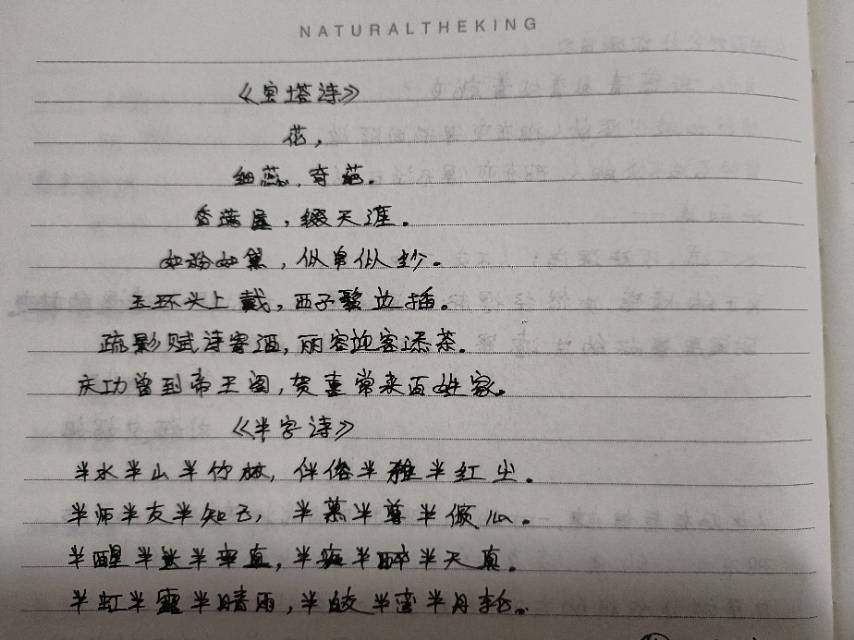 NATURALTHEKING
《宝塔诗》
花，
细蕊，奇葩。
香满屋，缀天涯。
如粉如黛，似帛似纱。
玉环头上戴，西子鬓边插。
疏影赋诗寄酒，丽容迎客添茶。
庆功曾到帝王阁，贺喜常来百姓家。
《半字诗》
半水半山半竹林，伴俗半雅半红尘。
半师半友半知己，半慕半尊半倾心。
半醒半迷半率真，半痴半醉半天真。
半虹半霞半晴雨，半皎半蛮半月轮。